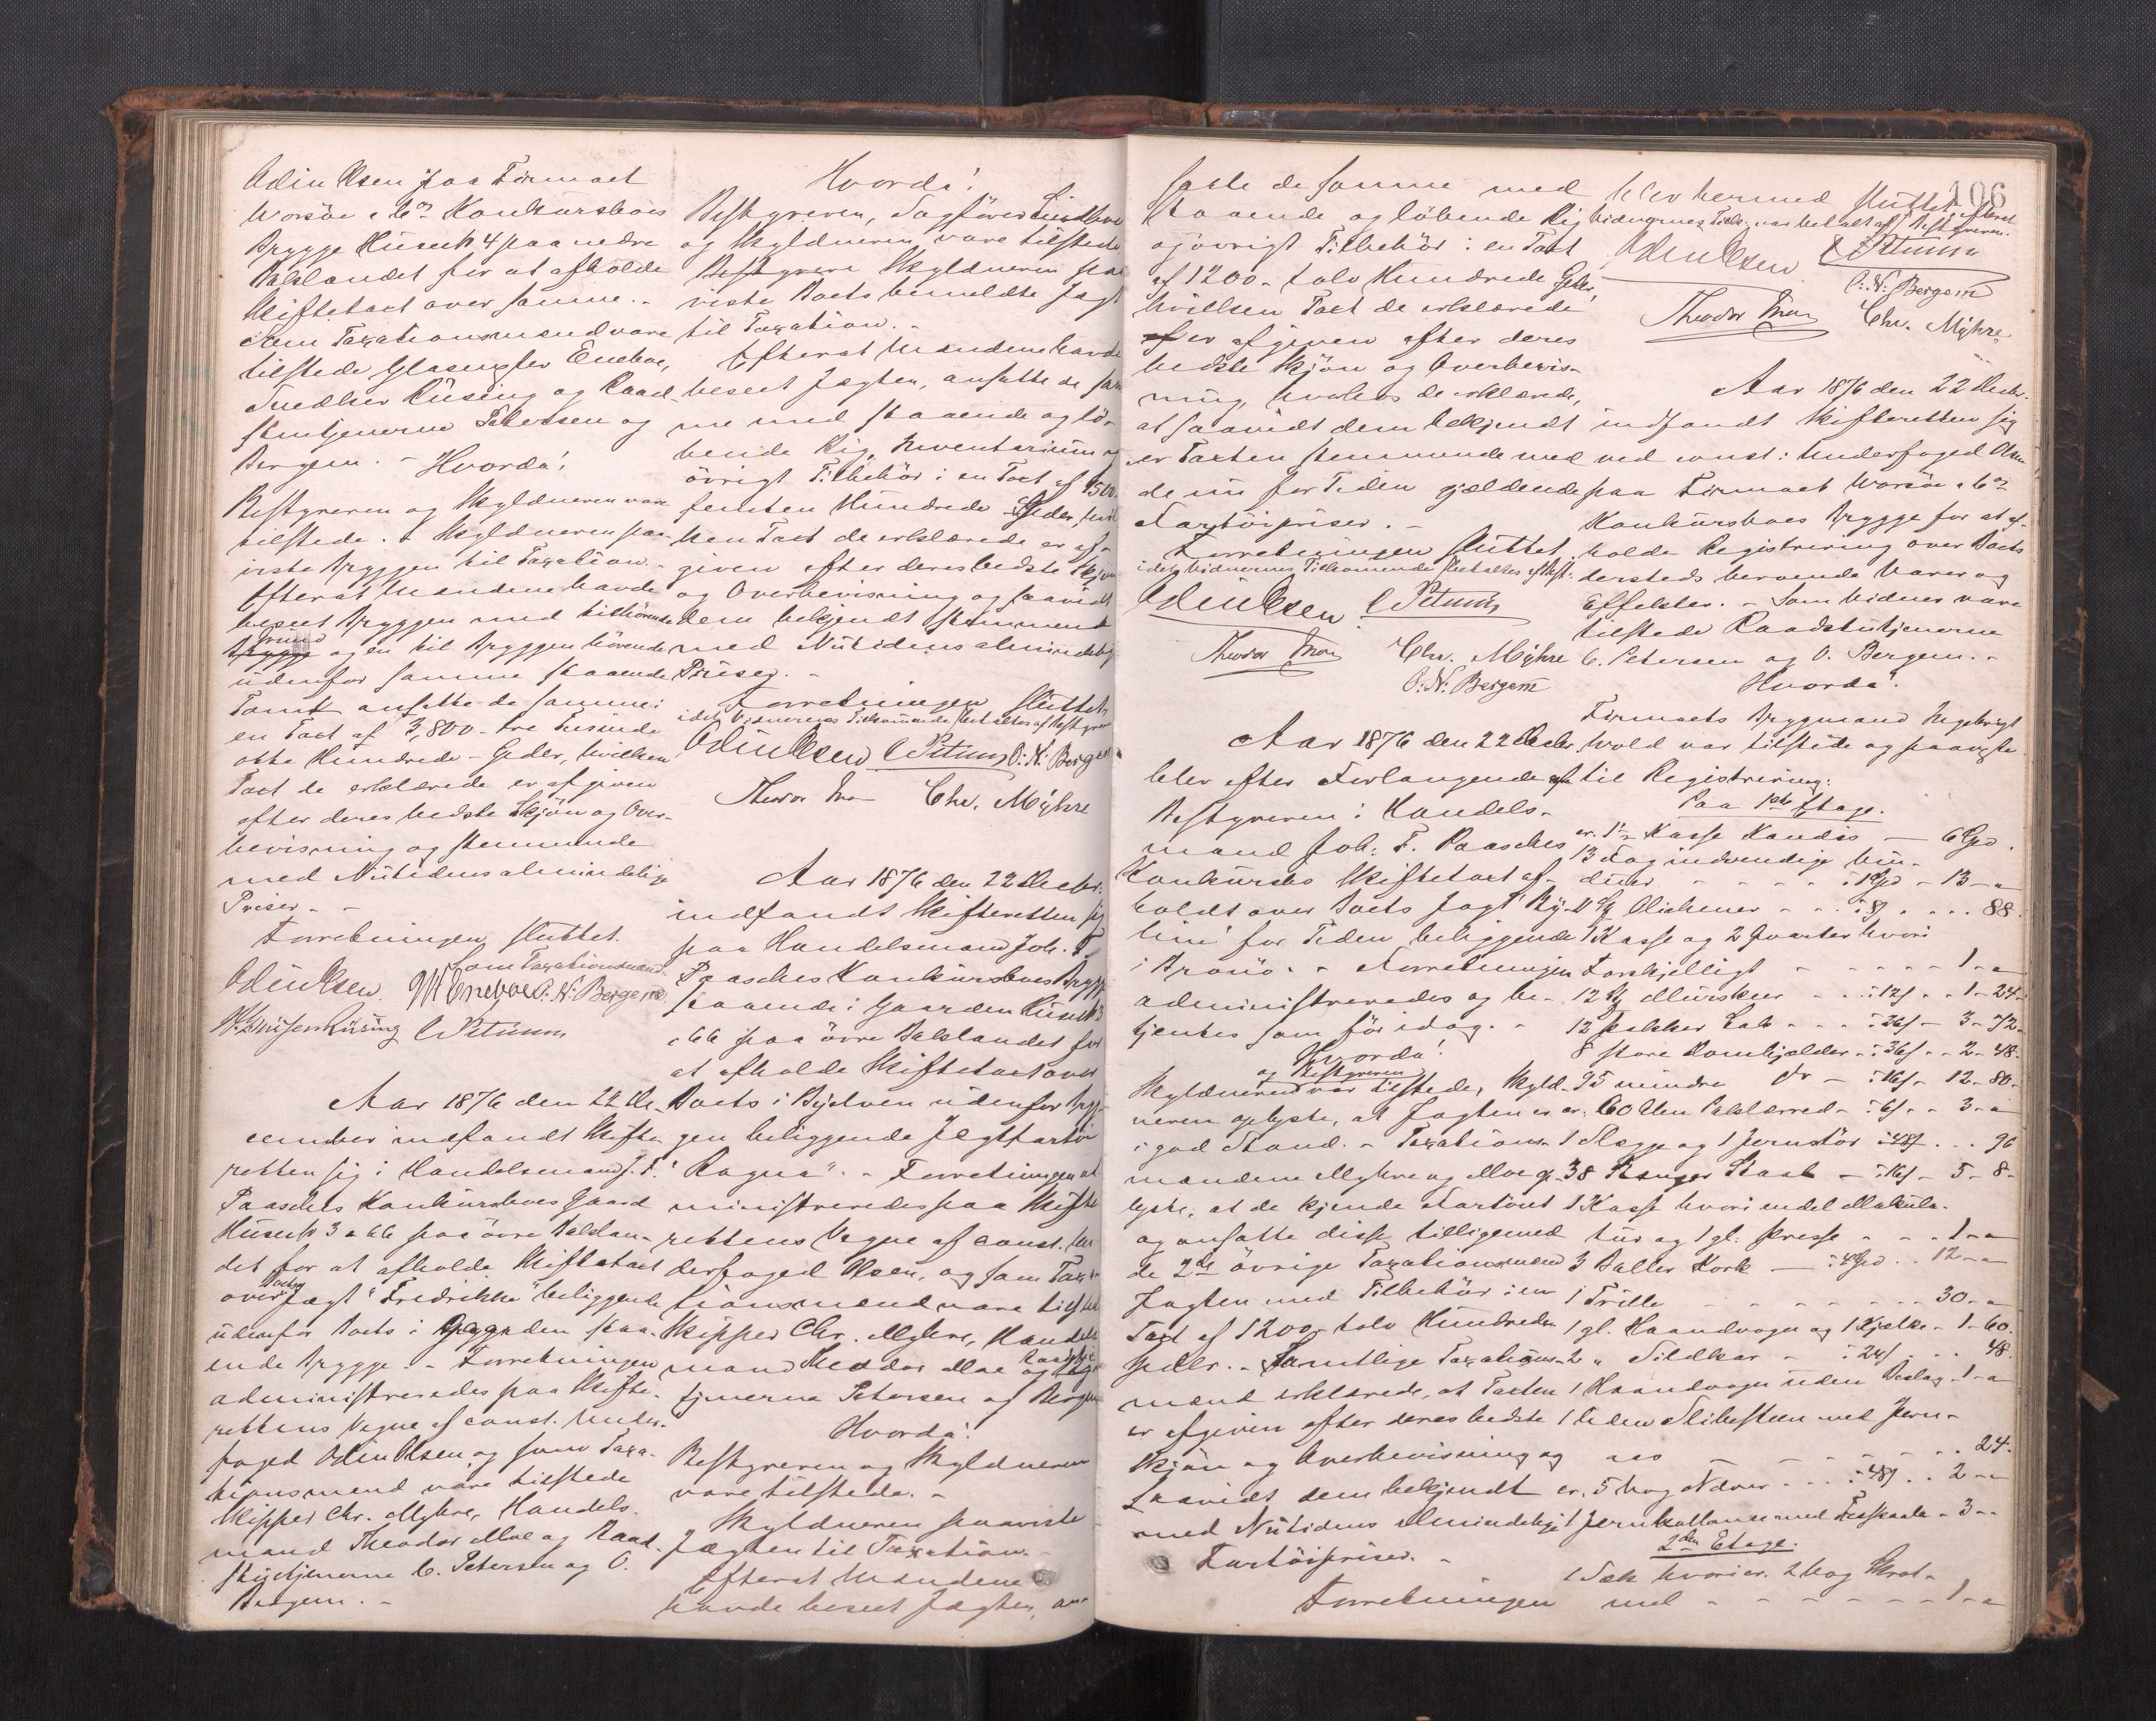 Odin Olsen paa Firmaet
Worsøe & Co. Konkursboes
Brygge Huus No 4 paa nedre
Baklandet for at afholde
Skiftetaxt over samme. -
Som Taxationsmænd vare
tilstede Glasmester Eneboe,
Snedker Rüsing og Raad-
stutjenerne Petersen og
Bergem. - Hvorda!
Bestyreren og Skyldneren vare
tilstede. Skyldneren paa-
viste Bryggen til Taxation. -
Efterat Mændene havde
beseet Bryggen med tilhørende
Grund og en til Bryggen hørende
udenfor samme staaende
Tomt ansatte de samme i
en Taxt af 3,800 - tre Tusinde
otte Hundrede - Spdlr, hvilken
Taxt de erklærede er afgiven
efter deres bedste Skjøn og Over-
bevisning og stemmende
med Nutidens almindelige
Priser. -
Forretningen sluttet.
som Taxationsmænd.
Odin Olsen. M Eneboe O: N: Bergem
Rüsing C Petersen
Aar 1876 den 22 De-
cember indfandt Skifte-
retten sig i Handelsmand J. F.
Paasches Konkursboes Gaard
Huus No 3 a 66 paa øvre Baklan-
det for at afholde Skiftetaxt
over Boets Jagt "Fredrikke" beliggende
udenfor Boets i Gaarden staa-
ende Brygge. - Forretningen
administreredes paa Skifte-
rettens Vegne af const. Under-
foged Odin Olsen, og som Taxa-
tionsmænd vare tilstede
Skipper Chr. Myhre, Handels-
mand Theodor Moe og Raad-
stutjenerne C. Petersen og O.
Bergem. -
Hvorda!
Bestyreren, Sagfører
og Skyldneren vare tilstede
Bestyrere Skyldneren paa-
viste Boets bemeldte Jagt
til Taxation. -
Efterat Mændene havde
beseet Jagten, ansatte de sam-
me med staaende og lø-
bende Rig, Inventarium og
øvrigt Tilbehør i en Taxt af 1500.
femten Hundrede Spdlr, hvil-
ken Taxt de erklærede er af-
given efter deres bedste Skjøn
og Overbevisning og saavidt
dem bekjendt stemmende
med Nutidens almindelige
Priser. -
Forretningen sluttet,
idet Vidnernes Tilkommende betaltes af Bestyreren
Odin Olsen C Petersen O: N: Bergem
Theodor Moe Chr. Myhre
Aar 1876 den 22 Decbr.
indfandt Skifteretten sig
paa Handelsmand Joh. F.
Paasches Konkursboes Brygge
staaende i Gaarden Huus No 3
a 66 paa øvre Baklandet for
at afholde Skiftetaxt over
Boets i Byelven udenfor Bryg-
gen beliggende Jægtfartøi
"Ragna". - Forretningen ad-
ministreredes paa Skifte-
rettens Vegne af const. Un-
derfoged Olsen, og som Taxa-
tionsmænd vare tilstede
Skipper Chr. Myhre, Handels-
mand Theodor Moe og Raadstu-
tjenerne Petersen og Bergem
Hvorda!
Bestyreren og Skyldneren
vare tilstede. -
Skyldneren paaviste
Jægten til Taxation. -
Efterat Mændene
havde beseet Jægten, an-
106
satte de samme med
staaende og løbende Rig
og øvrigt Tilbehør i en Taxt
af 1200 - tolv Hundrede Spdlr,
hvilken Taxt de erklærede
er afgiven efter deres
bedste Skjøn og Overbevis-
ning, hvorhos de erklærede,
at saavidt dem bekjendt
er Taxten stemmende med
de nu for Tiden gjældende
Fartøipriser. -
Forretningen sluttet,
idet Vidnernes Tilkommende betaltes af Best:
Odin Olsen C Petersen
Theodor Moe Chr. Myhre
O: N: Bergem
Aar 1876 den 22 Decbr.
blev efter Forlangende af
Bestyreren i Handels-
mand Joh: F. Paasches
Konkursbo Skiftetaxt af-
holdt over Boets Jagt
for Tiden beliggende
i Bronø. - Forretningen
administreredes og be-
tjentes som før idag. -
Hvorda!
og Bestyreren
Skyldneren var tilstede, Skyld-
neren oplyste, at Jagten er
i god Stand. - Taxations-
mændene Myhre og Moe op-
lyste, at de kjende Fartøiet
og ansatte disse tilligemed
de 2de øvrige Taxationsmænd
Jagten med Tilbehør i en
Taxt af 1200 - tolv Hundrede
Spdlr. - Samtlige Taxations-
mænd erklærede, at Taxten
er afgiven efter deres bedste
Skjøn og Overbevisning og
saavidt dem bekjendt
med Nutidens almindelige
Fartøipriser. -
Forretningen
blev hermed sluttet, efterat
Vidnernes Tilk: var betalt af Bestyreren.
Odin Olsen C Petersen
O: N: Bergem
Theodor Moe Chr. Myhre
Aar 1876 den 22 Decbr.
indfandt Skifteretten sig
ved const: Underfoged Olsen
paa Firmaet Worsøe & Co.
Konkursboes Brygge for at af-
holde Registrering over Boets
dersteds beroende Varer og
Effekter. - Som Vidner vare
tilstede Raadstutjenerne
C. Petersen og O. Bergem. -
Hvorda!
Firmaets Brygmand Ingebrigt
Wold var tilstede og paaviste
til Registrering:
Paa 1ste Etage.
ca. 1/2 Kasse Kandis - 6 Spd.
13 Fag indvendige Vin-
duer - - - - à 1 Spd - 13 - "
11 - - - à 8 ß - - - 88.
1 Kasse og 2 Qvarter hvori
Forskjelligt - - - - - 1 - "
12 - - à 12 ß - - 1 - 24 -
12 Sække Salt - - - à 36 ß - 3 - 72 -
8 store - à 36 ß - - 2 - 48 -
95 mindre do - à 16 ß - 12 - 80 -
ca. 60 Alen Paklærred - à 6 ß - - 3 - "
1 Slægge og 1 Jernstør à 48 ß - - - 96
38 Stænger Staal - à 16 ß - 5 - 8 -
1 Kasse hvori endel Makula-
tur og 1 gl: Presse - - - 1 - "
3 Baller Kork - à 4 Spd - - 12 - "
1 Trille - - - - - - - 30 - "
1 gl. Haandvogn og 1 Kjælke - 1 - 60.
2 " Sildkar - à 24 ß - - - 48.
1 Haandvogn uden Beslag - 1 - "
1 liden Slibesteen med Jern-
aas - - - - - - 24.
ca. 5 Vog Næver - - - à 48 ß - - 2 - "
1 Jernballance med Træskaale - 3 - "
2den Etage.
1 Sæk hvori ca. 2 Vog
mel - - - - - - - 1 - "